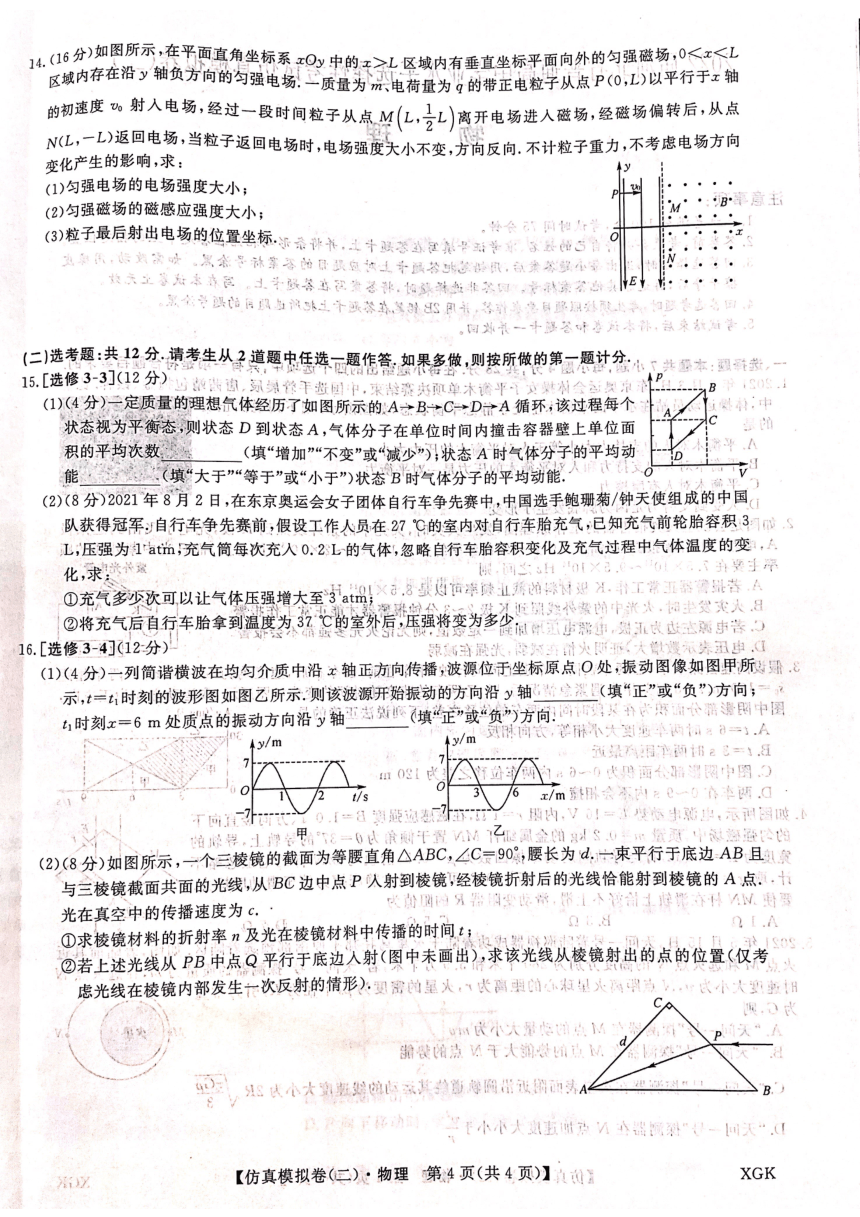 14.(16分)如图所示,在平面直角坐标系xOy中的x>L区域内有垂直坐标平面向外的匀强磁场,0<x<L
区域内存在沿y轴负方向的匀强电场.一质量为m、电荷量为q的带正电粒子从点P(0,L)以平行于x轴
的初速度v₀射入电场,经过一段时间粒子从点M(L,1/2L)离开电场进入磁场,经磁场偏转后,从点
N(L,-L)返回电场,当粒子返回电场时,电场强度大小不变,方向反向.不计粒子重力,不考虑电场方向
变化产生的影响,求:
(1)匀强电场的电场强度大小;
(2)匀强磁场的磁感应强度大小;
(3)粒子最后射出电场的位置坐标.
y
P
v₀
M
B
O
x
N
E
(二)选考题:共12分.请考生从2道题中任选一题作答.如果多做,则按所做的第一题计分.
15.[选修3-3](12分)
(1)(4分)一定质量的理想气体经历了如图所示的A→B→C→D→A循环,该过程每个
状态视为平衡态,则状态D到状态A,气体分子在单位时间内撞击容器壁上单位面
积的平均次数________(填“增加”“不变”或“减少”);状态A时气体分子的平均动
能________(填“大于”“等于”或“小于”)状态B时气体分子的平均动能.
P
B
A
C
D
O
V
(2)(8分)2021年8月2日,在东京奥运会女子团体自行车争先赛中,中国选手鲍珊菊/钟天使组成的中国
队获得冠军.自行车争先赛前,假设工作人员在27 ℃的室内对自行车胎充气,已知充气前轮胎容积3
L,压强为1 atm,充气筒每次充入0.2 L的气体,忽略自行车胎容积变化及充气过程中气体温度的变
化,求:
①充气多少次可以让气体压强增大至3 atm;
②将充气后自行车胎拿到温度为37 ℃的室外后,压强将变为多少.
16.[选修3-4](12分)
(1)(4分)一列简谐横波在均匀介质中沿x轴正方向传播,波源位于坐标原点O处,振动图像如图甲所
示,t=t₁时刻的波形图如图乙所示.则该波源开始振动的方向沿y轴________(填“正”或“负”)方向;
t₁时刻x=6 m处质点的振动方向沿y轴________(填“正”或“负”)方向.
y/m
7
O
1
2
t/s
-7
甲
y/m
7
O
3
6
x/m
-7
乙
(2)(8分)如图所示,一个三棱镜的截面为等腰直角△ABC,∠C=90°,腰长为d,一束平行于底边AB且
与三棱镜截面共面的光线,从BC边中点P入射到棱镜,经棱镜折射后的光线恰能射到棱镜的A点.
光在真空中的传播速度为c.
①求棱镜材料的折射率n及光在棱镜材料中传播的时间t;
②若上述光线从PB中点Q平行于底边入射(图中未画出),求该光线从棱镜射出的点的位置(仅考
虑光线在棱镜内部发生一次反射的情形).
C
d
P
A
B
【仿真模拟卷(二)·物理 第4页(共4页)】
XGK